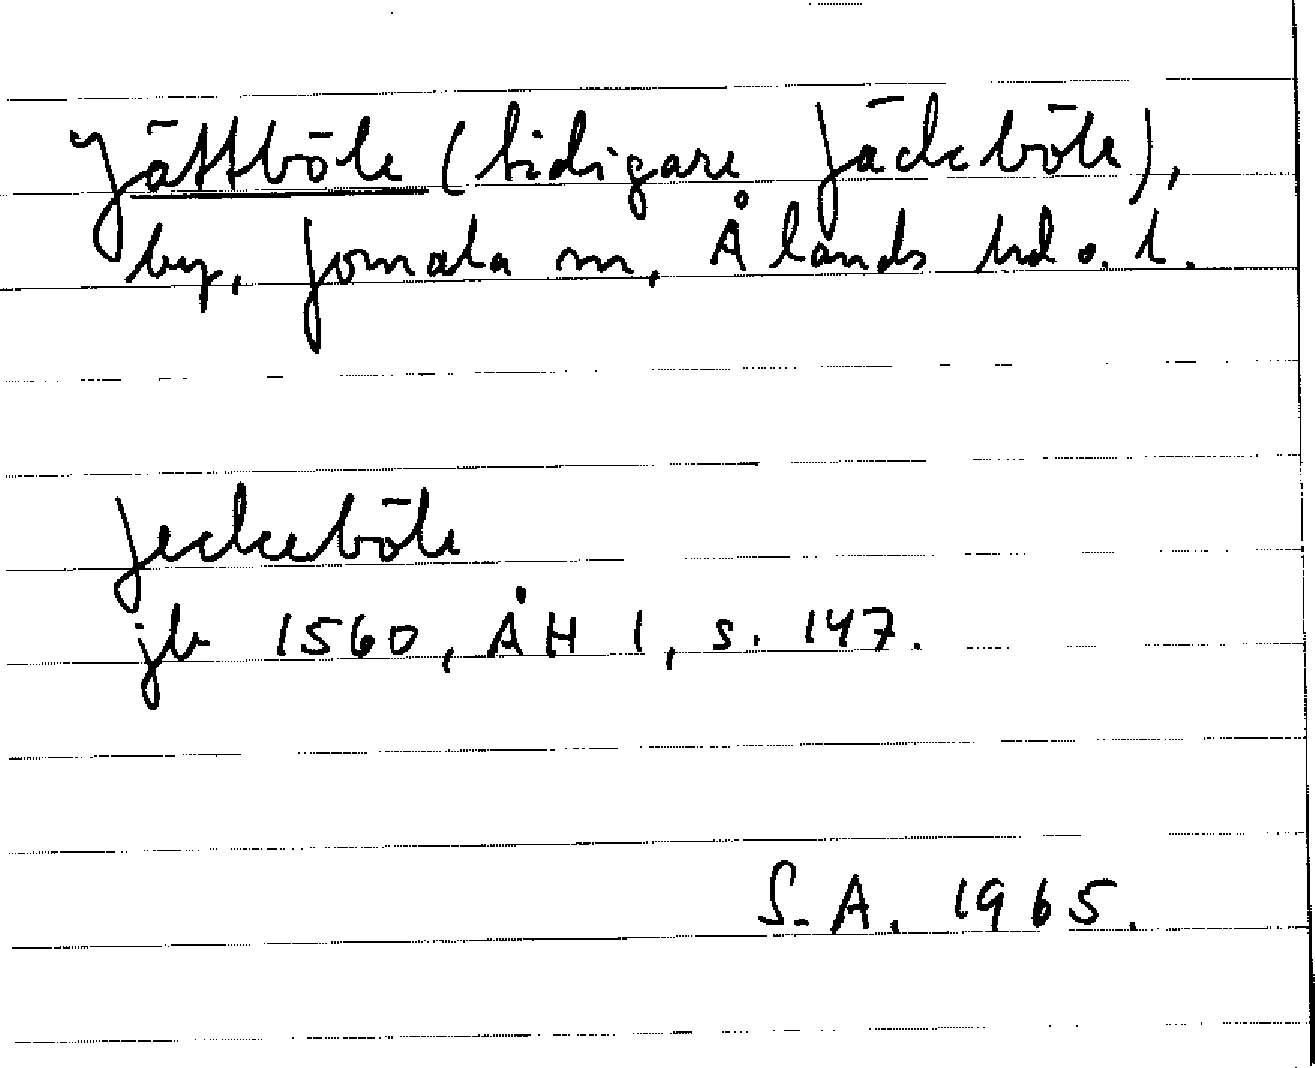 Jättböle (tidigare Jäckböle),
by, Jomala sn, Ålands hd o. l.
Jeckeböle
jb 1560, ÅH 1, s. 147.
S. A. 1965.